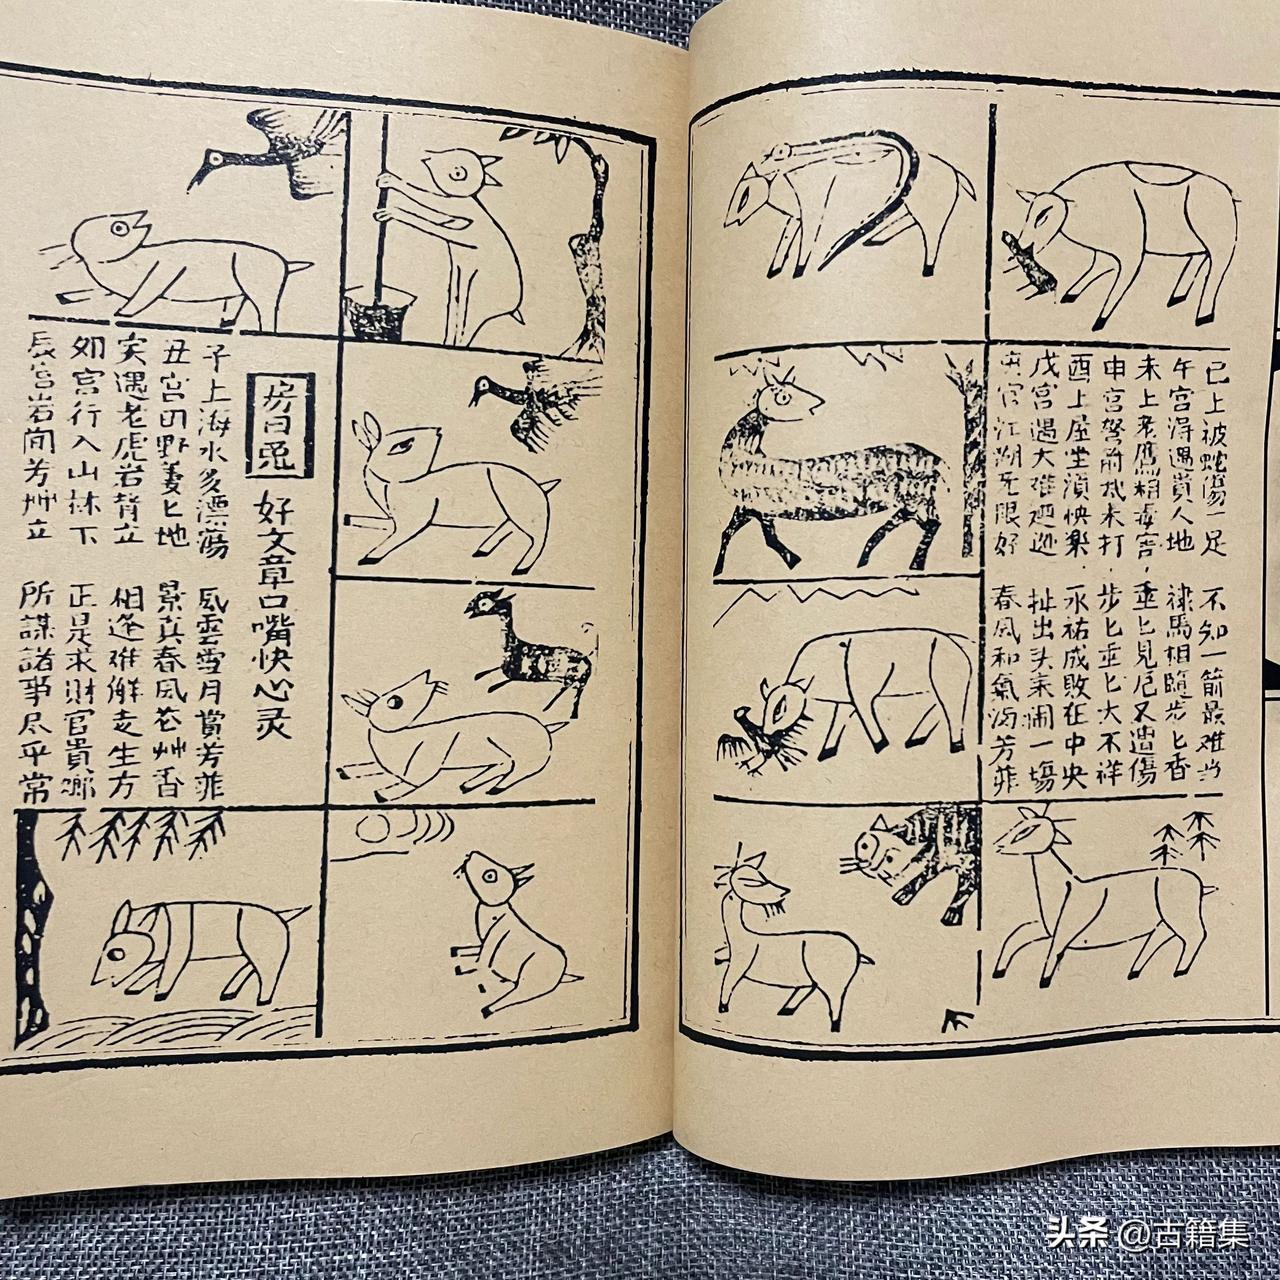 巳上被蛇傷一足 不知一箭最难当
午宮得遇貴人地 祿馬相隨步匕香
未上老鷹稍毒害 重匕見厄又遭傷
申宮弩箭末打 步匕重匕大不祥
酉上屋坐快樂 永祐成敗在中央
戌宮遇大难 扯出头来闹一場
宫江湖无限好 春风和氣满芳菲
房日兔
好文章口嘴快心灵
子上海水多漂蕩 风雲雪月賞芳菲
丑宮田野萋匕地 景真春风花艸香
寅遇老虎岩背立 相逢难解走生方
卯宮行入山林下 正是求財官貴鄉
辰宮岩间芳艸立 所謀諸事尽平常
头条 @古籍集